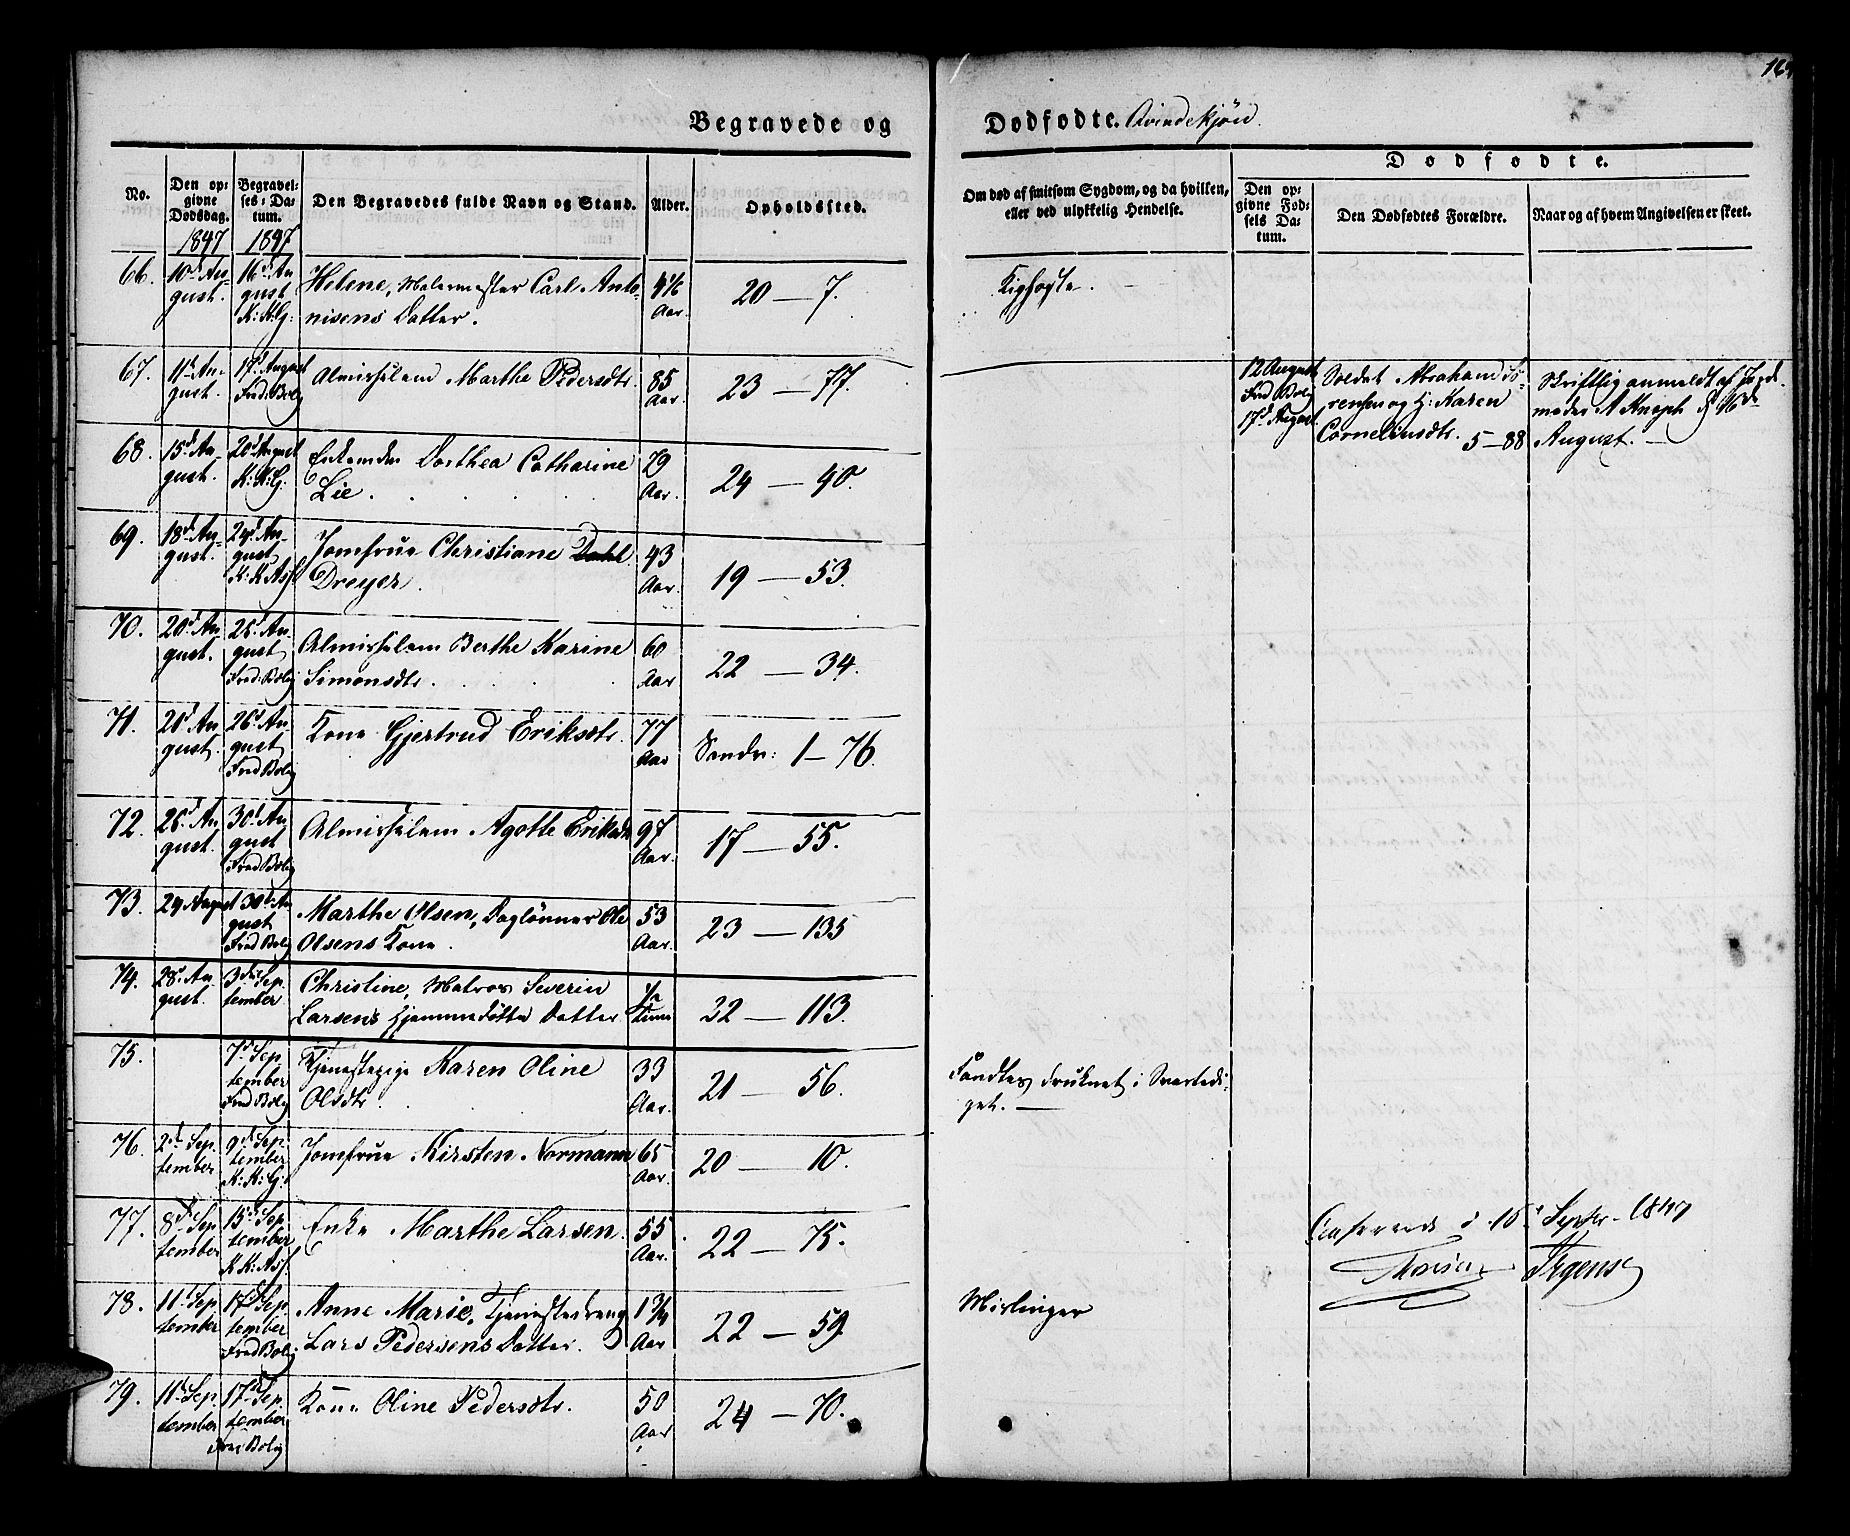 Begravede og
Dødfødte. Qvindekjøn.
No.
Den op:
givne
Dødsdag.
1847
Begravel-
ses: Da-
tum.
1847
Den Begravedes fulde Navn og Stand.
Alder.
Opholdssted.
Om død af smitsom Sygdom, og da hvilken,
eller ved ulykkelig Hendelse.
Dødfødte.
Den op:
givne Fød-
sels Da-
tum.
Den Dødfødtes Forældre.
Naar og af hvem Angivelsen er skeet.
66. 10d Au-
gust.
16d Au
gust
K: K: G:
Helene, Malermester Carl Anto-
nisens Datter.
Aar.
20 — 7.
Kighoste.
67. 11d Au-
gust.
17d August
Fred: Bolig
Almisselem Marthe Pedersdtr
85
Aar.
23 — 77.
12 August
Fred Bolig
17d August
Soldat Abraham Sø-
rensen og H: Karen
Corneliusdtr. 5—88
Skriftlig anmeldt af Jorde-
moder
August. —
68. 15d Au-
gust.
20d August
K: K: G:
Enkemdm Dorthea Catharine
Lie.
79
Aar.
24 — 40.
69. 18d Au-
gust.
24d Au-
gust
K: K Ass
Jomfrue Christiane Dahl
Dreyer.
43
Aar.
19 — 53.
70. 20d Au
gust.
25d Au-
gust
Fred: Bolig
Almisselem Berthe Karine
Simonsdtr.
60
Aar
22 — 34.
71. 20d Au
gust.
26d Au-
gust
Fred Bolig
Kone Gjertrud Eriksdtr.
77
Aar
Sandv: 1—76.
72. 26d Au
gust.
30d Au
gust
Fred Bolig
Almisselem Agotte Eriksdr
97
Aar.
17 — 55.
73. 24 August
30d Au
gust
Fred Bolig
Marthe Olsen, Daglønner Ole
Olsens Kone.
53
Aar.
23 — 135
74. 28d Au
gust.
3die Sep
tember
Christine, Matros Severin
Larsens Hjemmedøbte Datter
22 — 113.
75.
7d Sep
tember
Fred Bolig
Tjenestepige Karen Oline
Olsdtr.
33
Aar.
21 — 56.
Fandtes druknet i Svartedi-
get. —
76. 2d Sep
tember
9d Sep
tember
K: K: G:
Jomfrue Kirsten Normann
65
Aar.
20 — 10.
77. 8d Sep
tember
15d Sep
tember
K K: Ass:
Enke Marthe Larsen.
55
Aar.
22 — 75.
78. 11d Sep
tember
17d Sep
tember
Fred Bolig
Anne Marie, Tjenestedreng
Lars Pedersens Datter.
1 3/4
Aar
22 — 59
Mislinger
79. 11d Sep
tember
17d Sep
tember
Fred Bolig
Kone Oline Pedersdtr.
50
Aar
24 — 70.